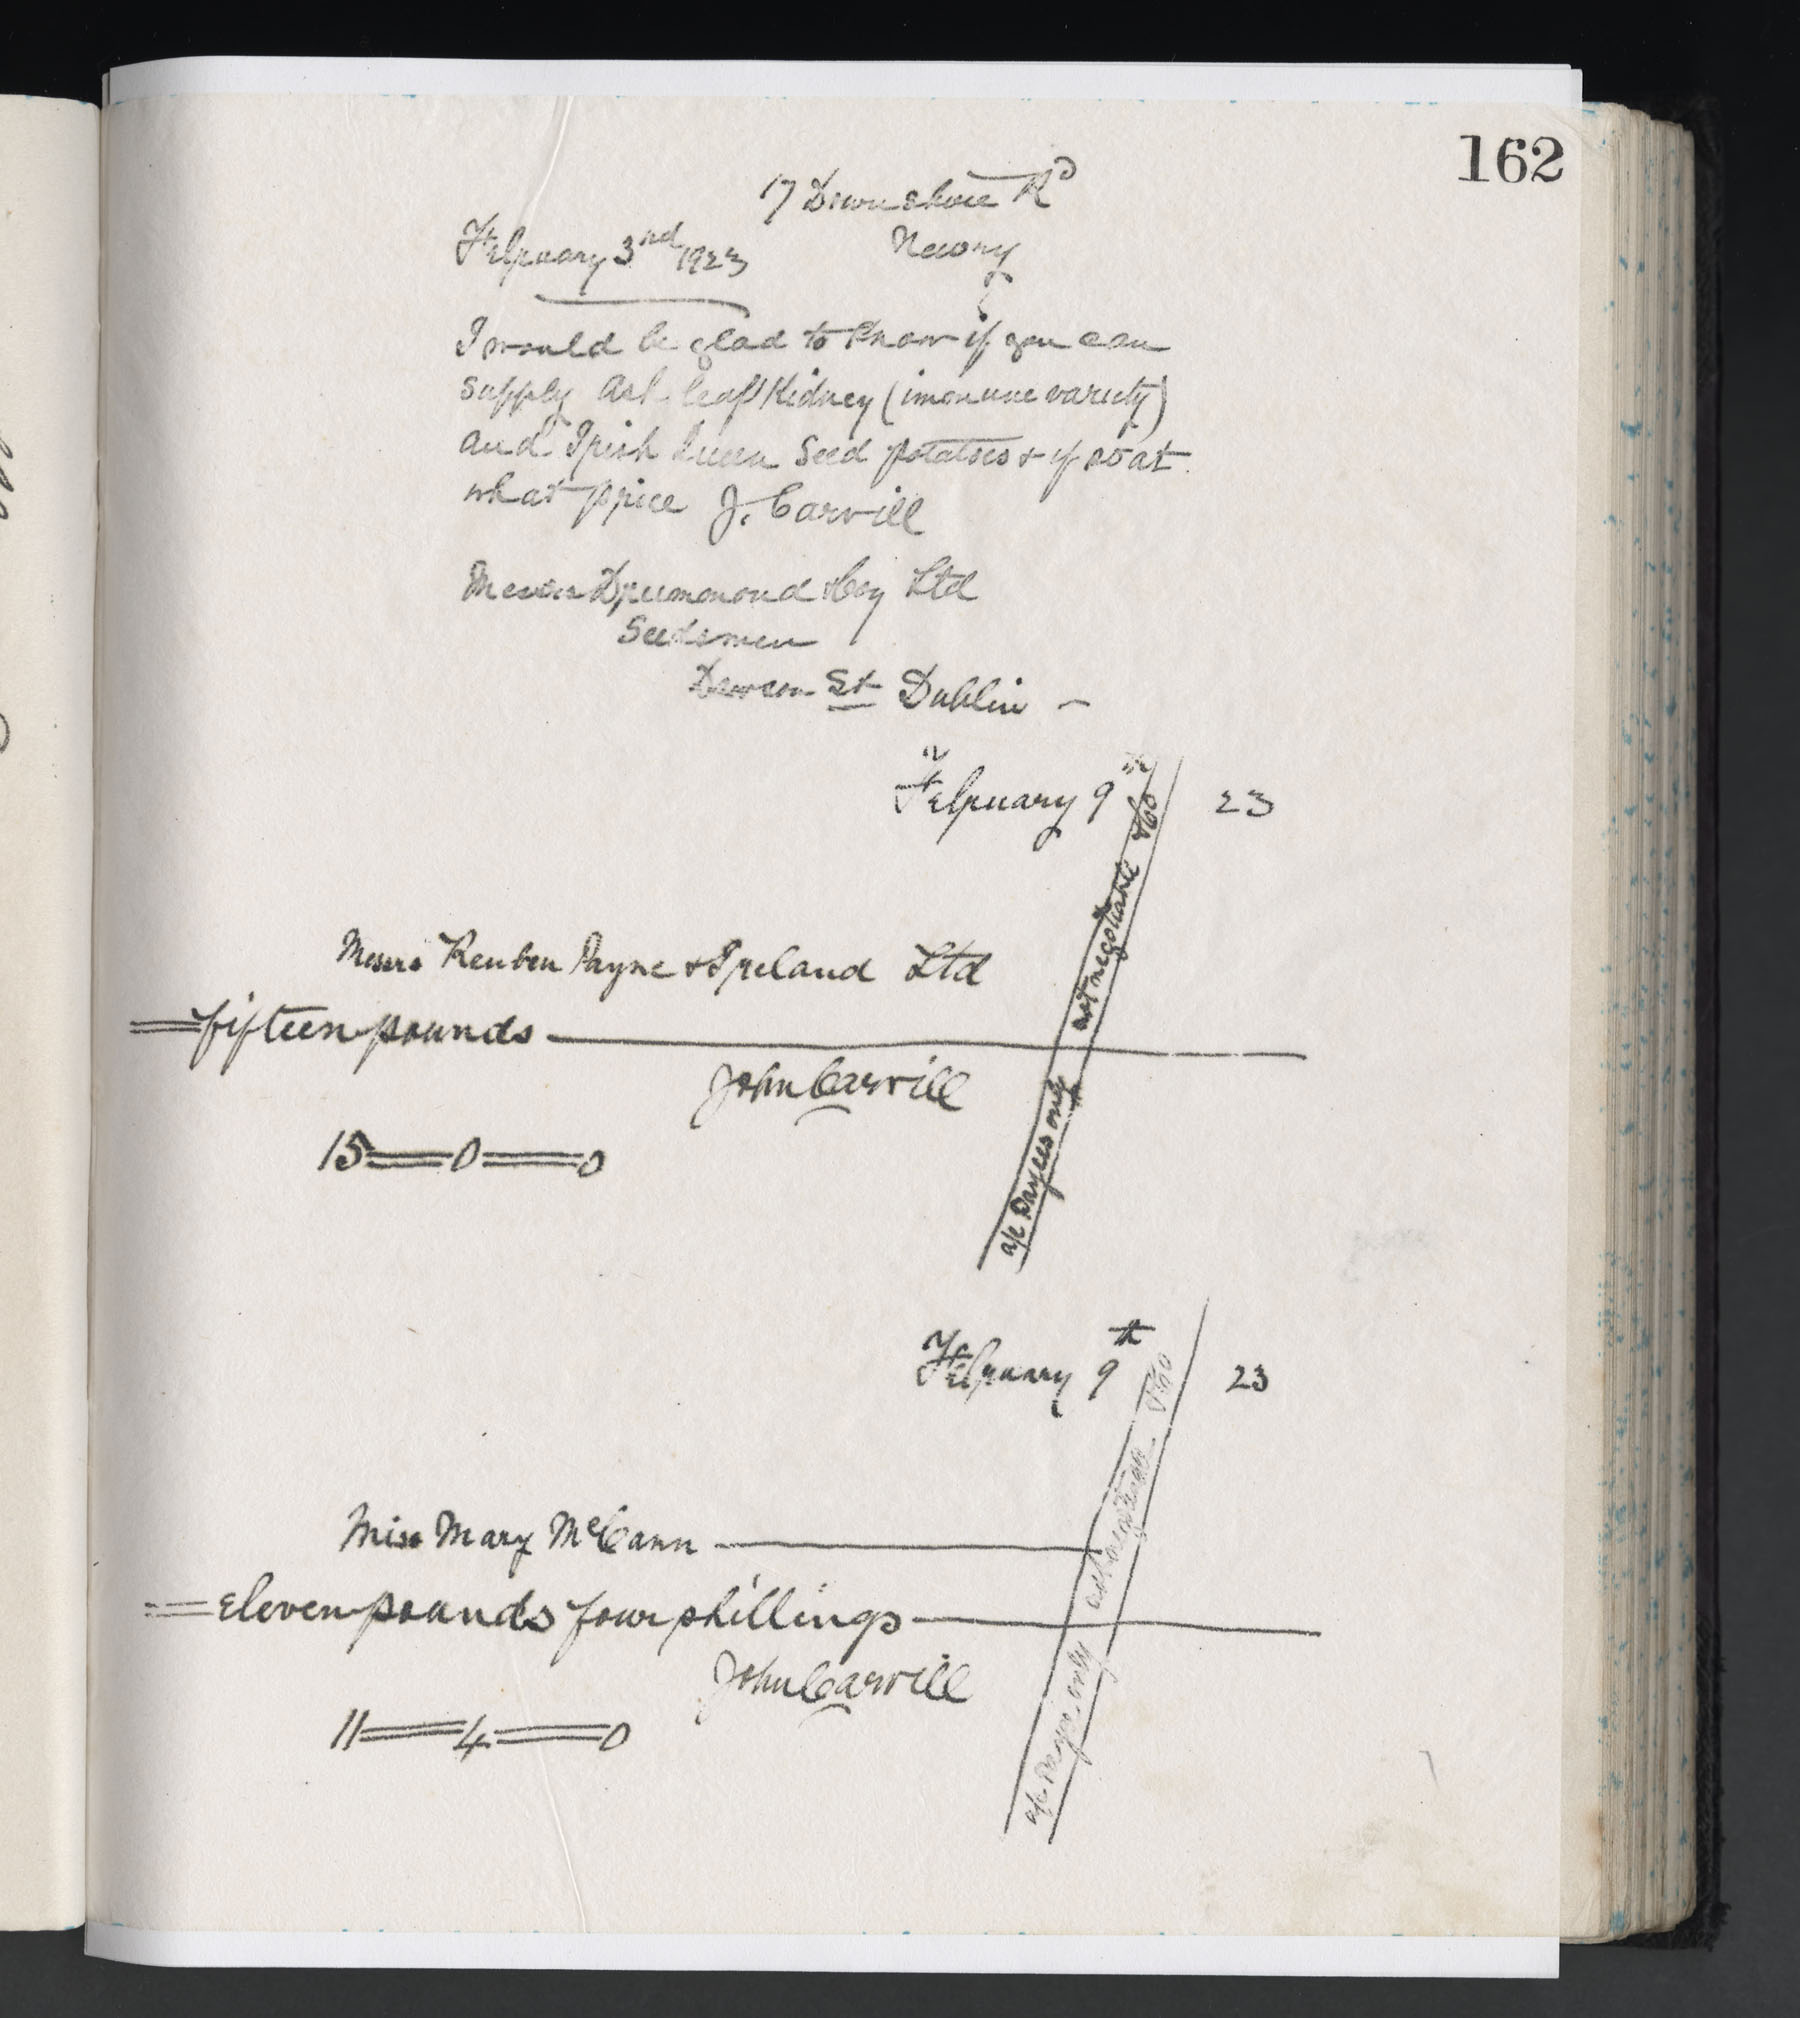 162
17 Downshire Rd
February 3rd 1923 Newry
I would be glad to know if you can
supply Ash leaf Kidney (immune variety)
and Irish Queen Seed potatoes & if so at
what price J. Carvill
Messrs Drummond & Coy Ltd
Seedsmen
Dawson St Dublin —
February 9th 23
Messrs Reuben Payne & Ireland Ltd
fifteen pounds
John Carvill
15 = 0 = 0
a/c Payees only not negotiable & Co
February 9th 23
Miss Mary McCann
eleven pounds four shillings
John Carvill
11 = 4 = 0
a/c Payee only not negotiable & Co